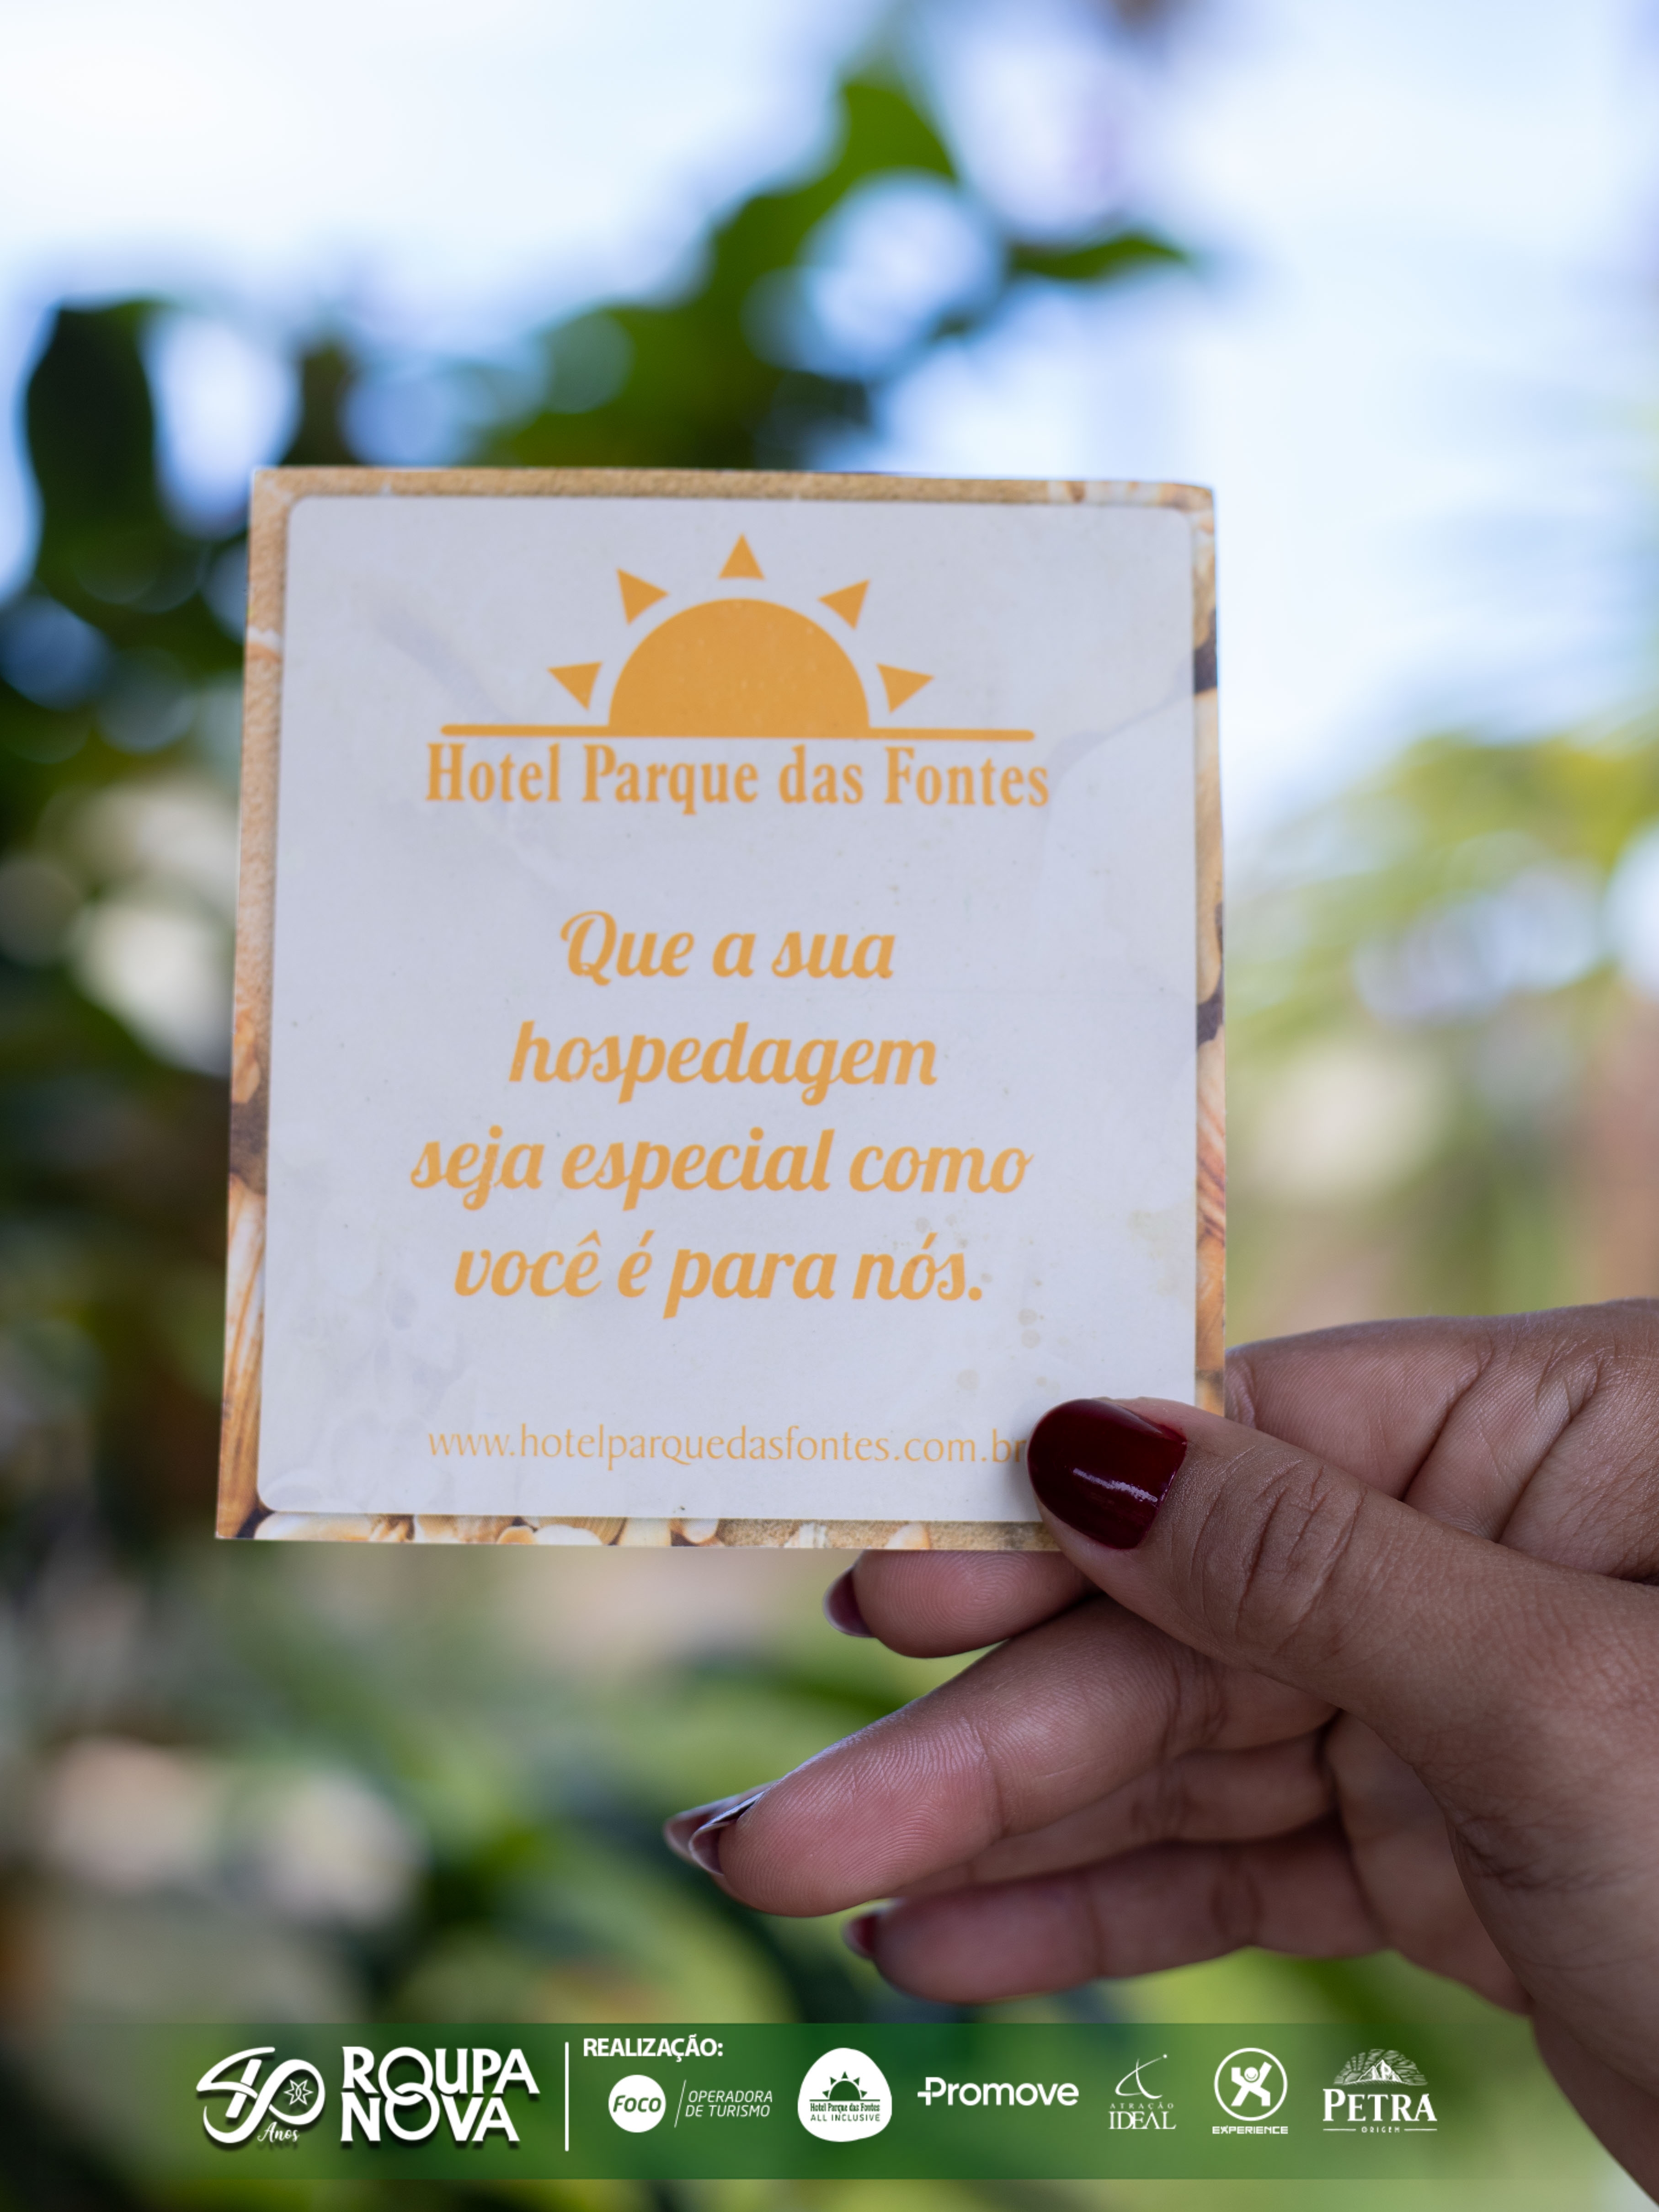 Hotel Parque das Fontes
Que a sua
hospedagem
seja especial como
você é para nós.
www.hotelparquedasfontes.com.br
40 Anos
ROUPA
NOVA
REALIZAÇÃO:
FOCO
OPERADORA
DE TURISMO
Hotel Parque das Fontes
ALL INCLUSIVE
+Promove
ATRAÇÃO
IDEAL
EXPERIENCE
PETRA
ORIGEM